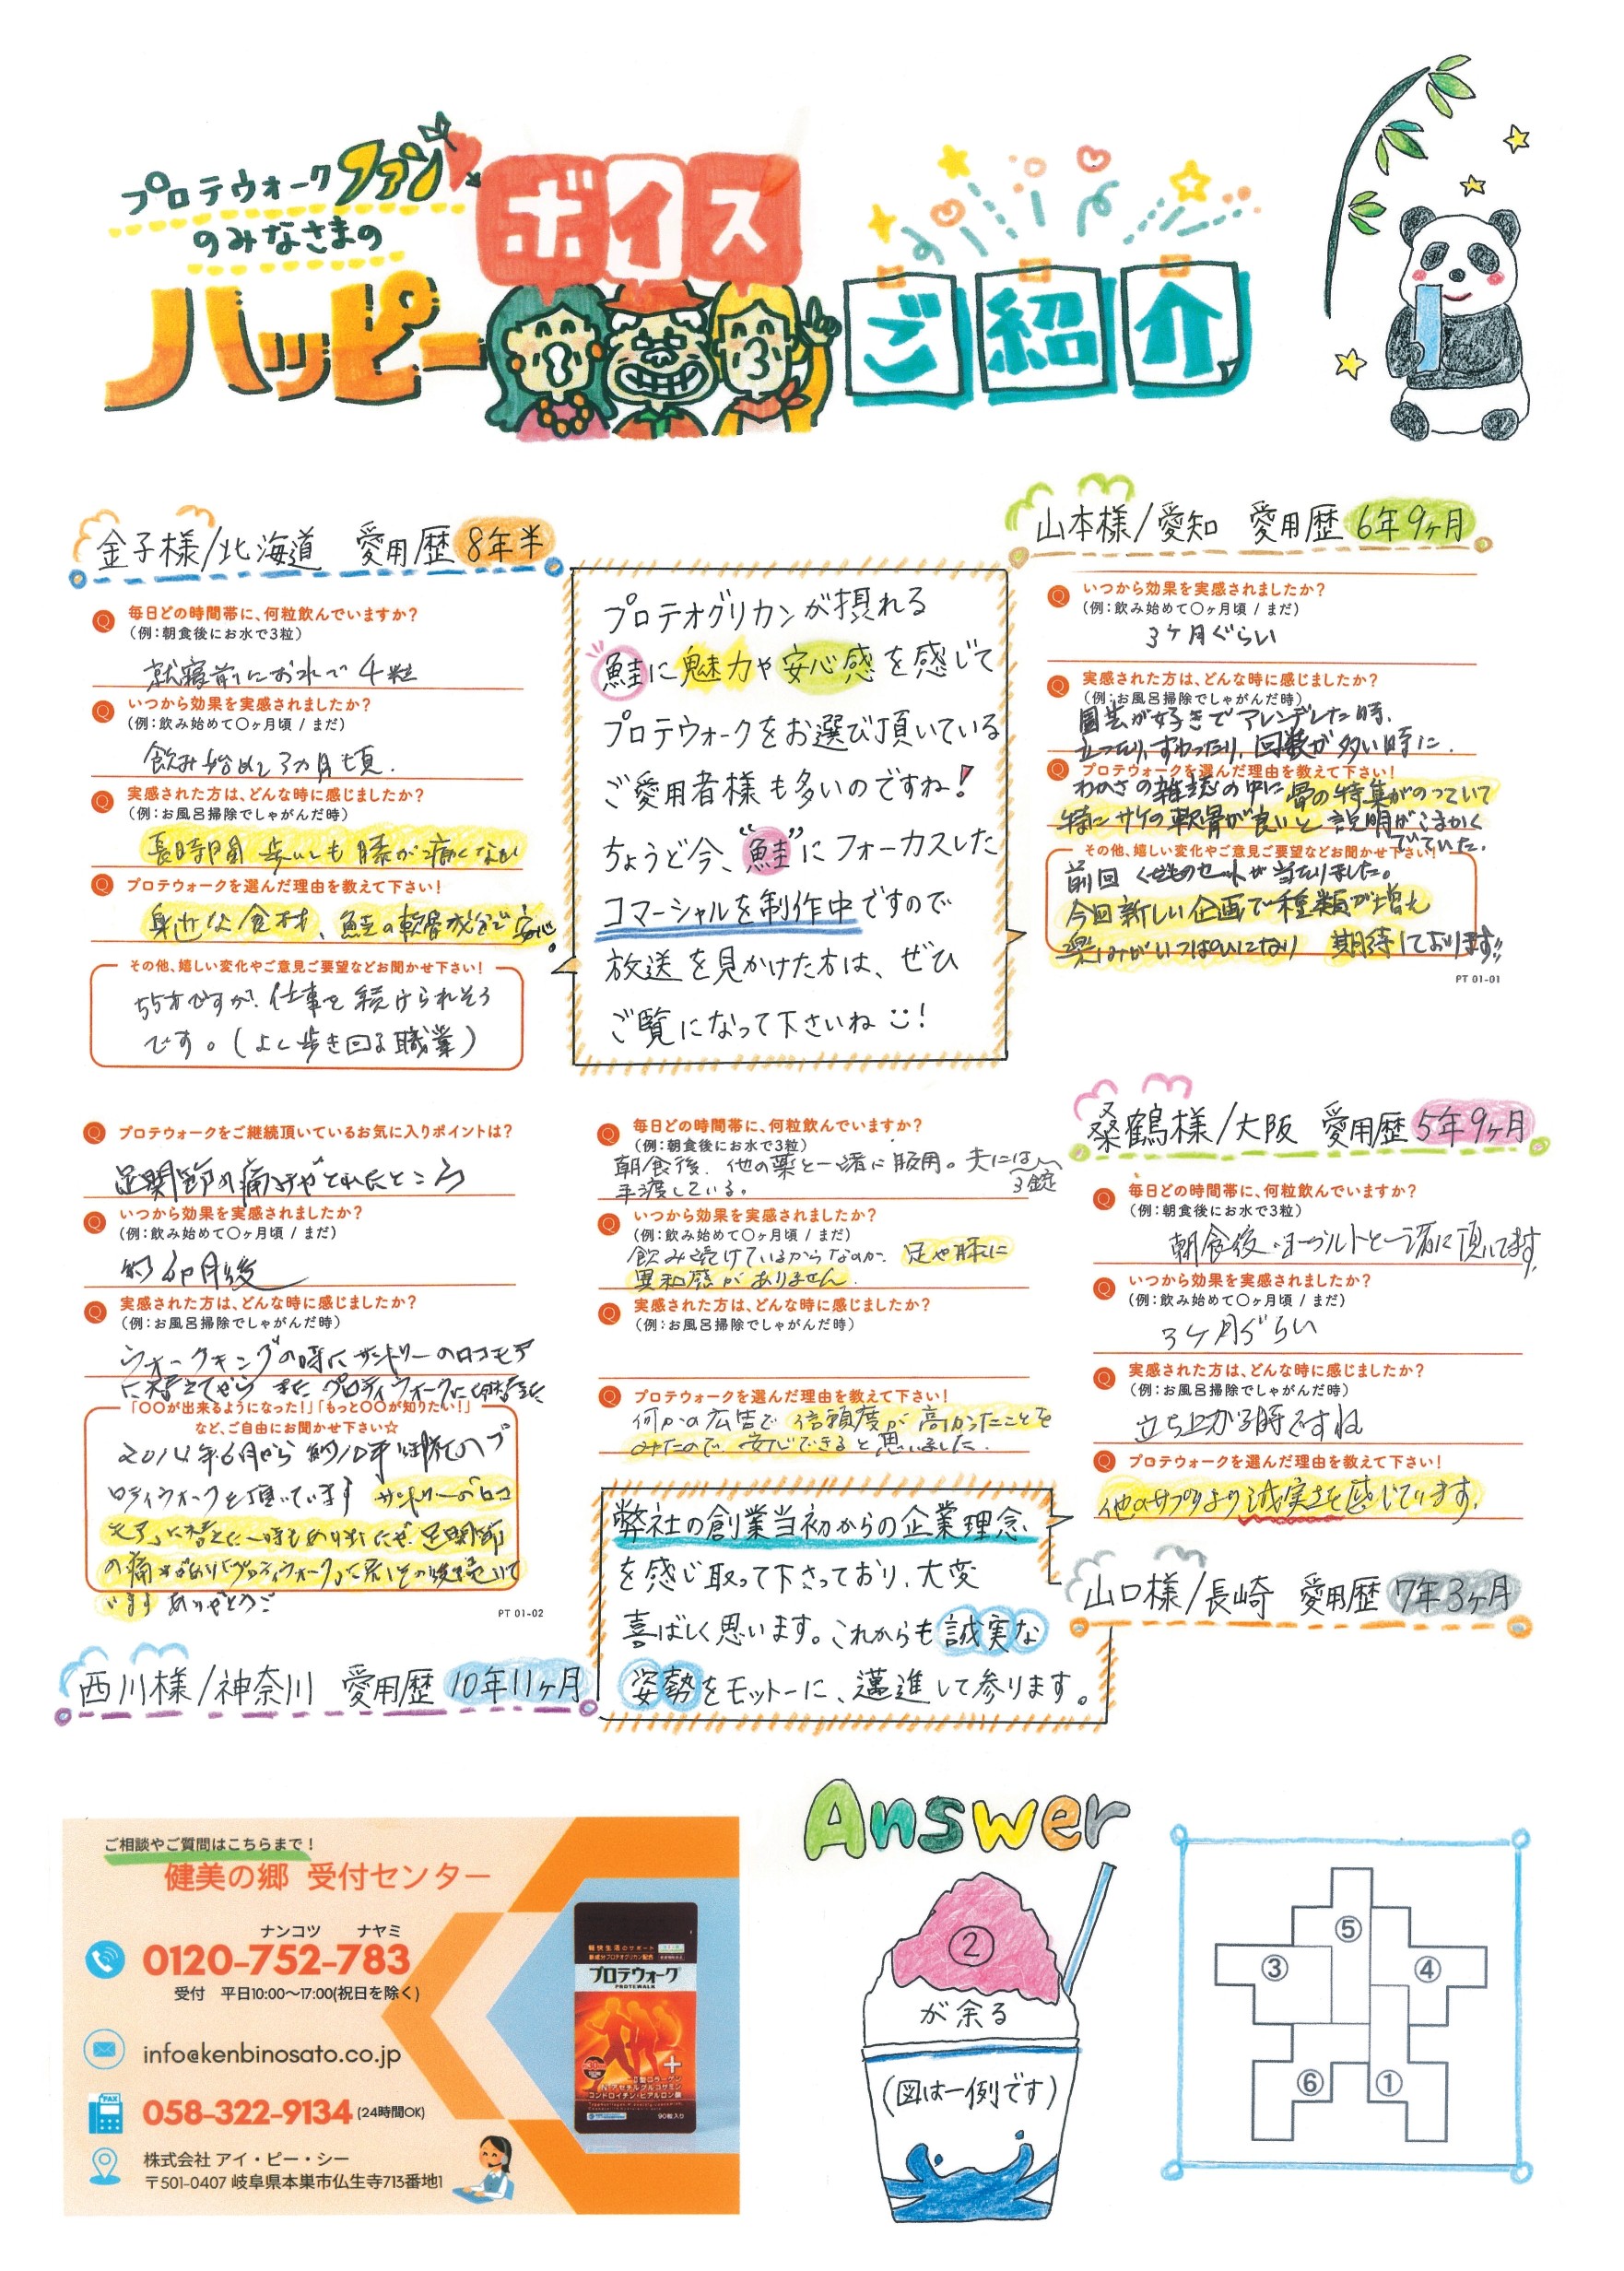 プロテウォークファン
のみなさまの
ハッピーボイス
ご紹介
金子様/北海道 愛用歴 8年半
Q 毎日どの時間帯に、何粒飲んでいますか?
(例:朝食後にお水で3粒)
就寝前にお水で4粒
Q いつから効果を実感されましたか?
(例:飲み始めて〇ヶ月頃 / まだ)
飲み始めて3カ月頃.
Q 実感された方は、どんな時に感じましたか?
(例:お風呂掃除でしゃがんだ時)
長時間 歩いても 膝が痛くない
Q プロテウォークを選んだ理由を教えて下さい!
身近な食材、鮭の軟骨成分で安心。
その他、嬉しい変化やご意見ご要望などお聞かせ下さい!
55才ですが、仕事を続けられそう
です。(よく歩き回る職業)
プロテオグリカンが摂れる
鮭に魅力や安心感を感じて
プロテウォークをお選び頂いている
ご愛用者様も多いのですね!
ちょうど今、“鮭”にフォーカスした
コマーシャルを制作中ですので
放送を見かけた方は、ぜひ
ご覧になって下さいね!
山本様/愛知 愛用歴 6年9ヶ月
Q いつから効果を実感されましたか?
(例:飲み始めて〇ヶ月頃 / まだ)
3ケ月ぐらい
Q 実感された方は、どんな時に感じましたか?
(例:お風呂掃除でしゃがんだ時)
園芸が好きでアレンヂした時.
立ったり,すわったり,回数が多い時に.
Q プロテウォークを選んだ理由を教えて下さい!
わかさの雑誌の中に骨の特集がのっていて
特にサケの軟骨が良いと説明がこまかく
でていた.
その他、嬉しい変化やご意見ご要望などお聞かせ下さい!
前回 くだものセットが当たりました。
今回新しい企画で種類が増え
楽しみがいっぱいになり 期待しております!!
PT 01-01
Q プロテウォークをご継続頂いているお気に入りポイントは?
足関節の痛みがとれたところ
Q いつから効果を実感されましたか?
(例:飲み始めて〇ヶ月頃 / まだ)
約6ヶ月後
Q 実感された方は、どんな時に感じましたか?
(例:お風呂掃除でしゃがんだ時)
ウォークキングの時にサントリーのロコモア
に替えてから またプロティウォークに替えた
「〇〇が出来るようになった!」「もっと〇〇が知りたい!」
など、ご自由にお聞かせ下さい☆
2014年6月から 約10年 継続してプ
ロティウォークを頂いています サントリーのロコ
モアに替えた一時もありましたが 足関節
の痛みがありプロティウォークに戻しその後続いて
います ありがとうございます
PT 01-02
西川様/神奈川 愛用歴 10年11ヶ月
Q 毎日どの時間帯に、何粒飲んでいますか?
(例:朝食後にお水で3粒)
朝食後. 他の薬と一緒に服用。夫には
手渡している。 3錠
Q いつから効果を実感されましたか?
(例:飲み始めて〇ヶ月頃 / まだ)
飲み続けているからなのか、足や膝に
異和感がありません.
Q 実感された方は、どんな時に感じましたか?
(例:お風呂掃除でしゃがんだ時)
Q プロテウォークを選んだ理由を教えて下さい!
何かの広告で信頼度が高かったことを
みたので、安心できると思いました.
弊社の創業当初からの企業理念
を感じ取って下さっており、大変
喜ばしく思います。これからも誠実な
姿勢をモットーに、邁進して参ります。
桑鶴様/大阪 愛用歴 5年9ヶ月
Q 毎日どの時間帯に、何粒飲んでいますか?
(例:朝食後にお水で3粒)
朝食後.ヨーグルトと一緒に頂いてます.
Q いつから効果を実感されましたか?
(例:飲み始めて〇ヶ月頃 / まだ)
3ケ月ぐらい
Q 実感された方は、どんな時に感じましたか?
(例:お風呂掃除でしゃがんだ時)
立ち上がる時ですね
Q プロテウォークを選んだ理由を教えて下さい!
他のサプリより誠実さを感じています.
山口様/長崎 愛用歴 7年3ヶ月
ご相談やご質問はこちらまで!
健美の郷 受付センター
ナンコツ ナヤミ
0120-752-783
受付 平日10:00〜17:00(祝日を除く)
info@kenbinosato.co.jp
FAX
058-322-9134 (24時間OK)
株式会社 アイ・ピー・シー
〒501-0407 岐阜県本巣市仏生寺713番地1
軽快生活のサポート
プロテウォーク
PROTEWALK
II型コラーゲン
N-アセチルグルコサミン
コンドロイチン・ヒアルロン酸
90粒入り
Answer
②
が余る
(図は一例です)
⑤
③
④
⑥
①